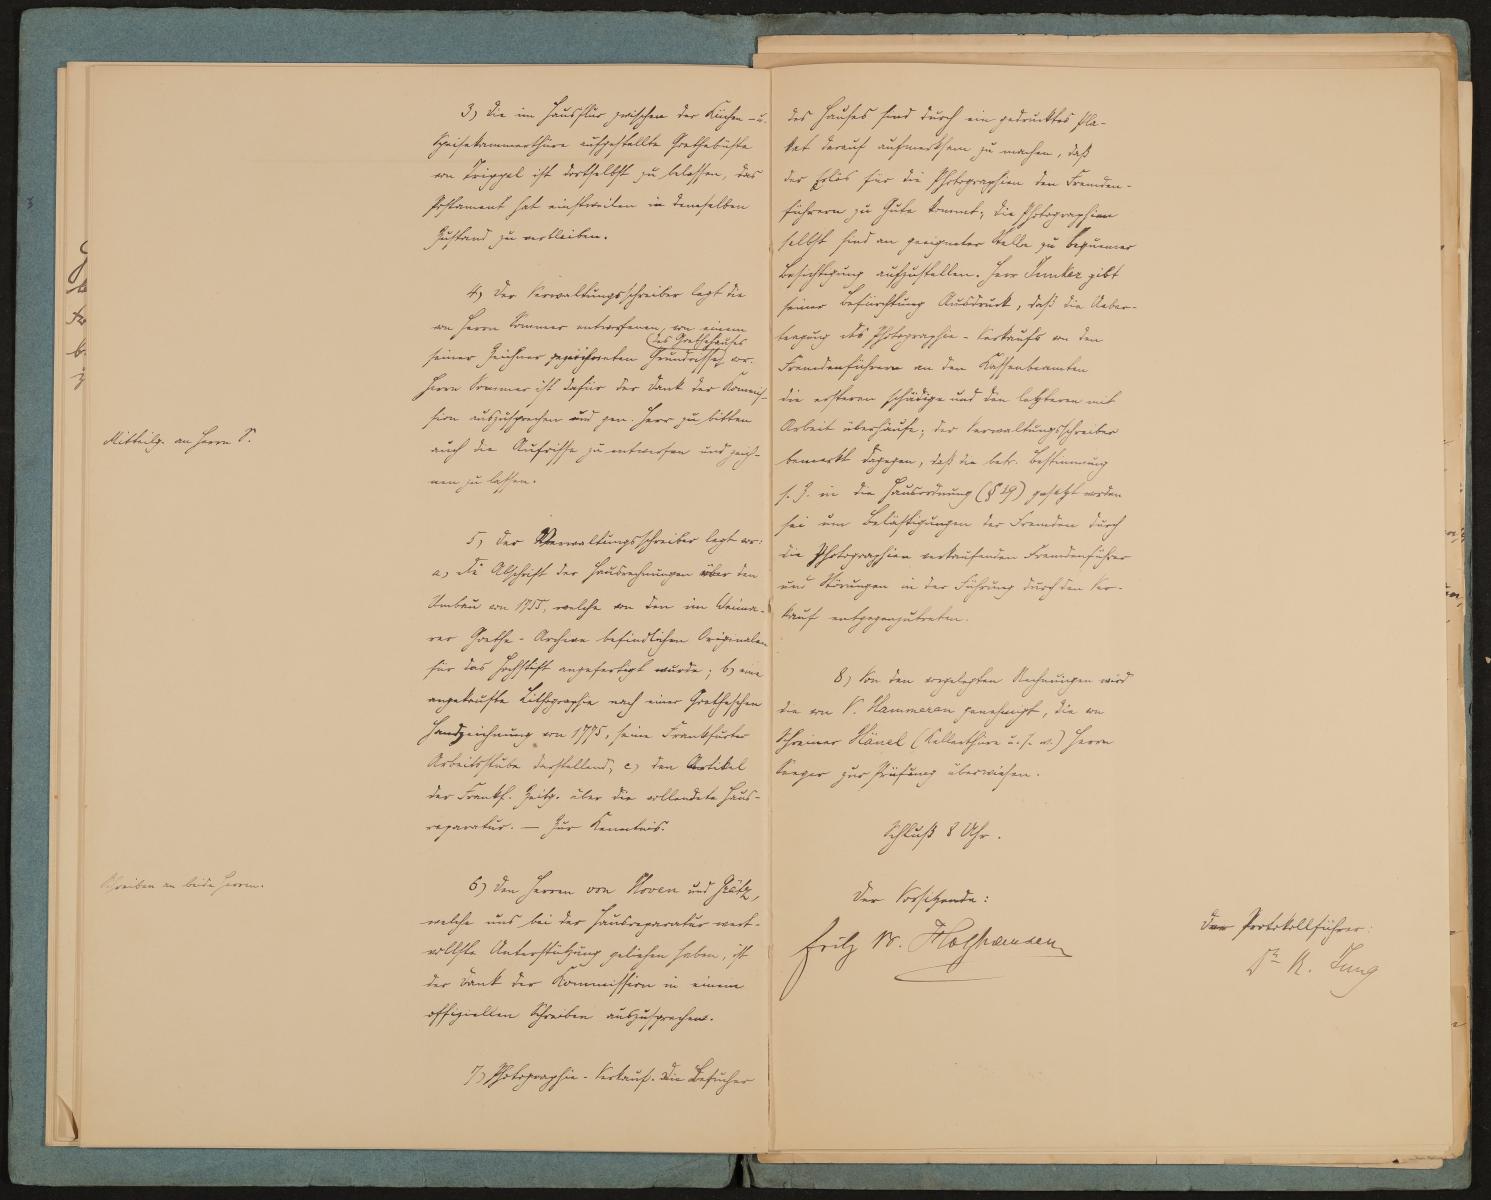 3) Die im Hausflur zwischen der Küchen- u.
Speisekammerthüre aufgestellte Goethebüste
von Trippel ist dortselbst zu belassen, das
Postament hat einstweilen in demselben
Zustand zu verbleiben.
4) Der Verwaltungsschreiber legt die
von Herrn Sommer entworfenen, von einem
seiner Zeichner gezeichneten Grundrisse des Goethehauses vor.
Herrn Sommer ist dafür der Dank der Kommis-
sion auszusprechen und gen. Herr zu bitten
auch die Aufrisse zu entwerfen und zeich-
nen zu lassen.
Mitteilg. an Herrn S.
5) Der Verwaltungsschreiber legt vor:
a) die Abschrift der Hausrechnungen über den
Umbau von 1755, welche von den im Weima-
rer Goethe-Archive befindlichen Originalen
für das Hochstift angefertigt wurde; b) eine
angekaufte Lithographie nach einer Goetheschen
Handzeichnung von 1775, seine Frankfurter
Arbeitsstube darstellend; c) den Artikel
der Frankf. Zeitg. über die vollendete Haus-
reparatur. — Zur Kenntnis.
6) Den Herren von Hoven und
welche uns bei der Hausreparatur wert-
vollste Unterstützung geliehen haben, ist
der Dank der Kommission in einem
offiziellen Schreiben auszusprechen.
Schreiben an beide Herren.
7) Photographie-Verkauf. Die Besucher
des Hauses sind durch ein gedrucktes Pla-
kat darauf aufmerksam zu machen, daß
der Erlös für die Photographien den Fremden-
führern zu Gute kommt; die Photographien
selbst sind an geeigneter Stelle zu bequemer
Besichtigung aufzustellen. Herr Junker gibt
seiner Befürchtung Ausdruck, daß die Ueber-
tragung des Photographie-Verkaufs von den
Fremdenführern an den Kassenbeamten
die ersteren schädige und den letzteren mit
Arbeit überhäufe; der Verwaltungsschreiber
bemerkt dagegen, daß die betr. Bestimmung
s. Z. in die Hausordnung (§ 19) gesetzt worden
sei um Belästigungen der Fremden durch
die Photographien verkaufenden Fremdenführer
und Störungen in der Führung durch den Ver-
kauf entgegenzutreten.
8) Von den vorgelegten Rechnungen wird
die von V. Hammeran genehmigt, die von
Schreiner Hänel (Kellerthüre u. s. w.) Herrn
Seeger zur Prüfung überwiesen.
Schluß 8 Uhr.
Der Vorsitzende:
Fritz W.
Der Protokollführer:
Dr. R. Jung